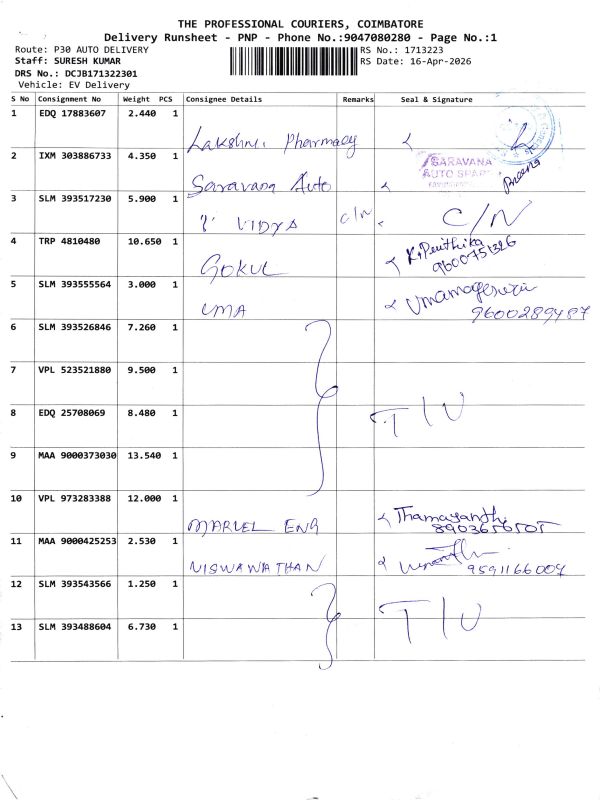 THE PROFESSIONAL COURIERS, COIMBATORE
Delivery Runsheet - PNP - Phone No.:9047080280 - Page No.:1
Route: P30 AUTO DELIVERY RS No.: 1713223
Staff: SURESH KUMAR RS Date: 16-Apr-2026
DRS No.: DCJB171322301
Vehicle: EV Delivery
S No Consignment No Weight PCS Consignee Details Remarks Seal & Signature
1 EDQ 17883607 2.440 1 Lakshmi Pharmacy
2 IXM 303886733 4.350 1 Saravana Auto SARAVANA
AUTO SPARES
3 SLM 393517230 5.900 1 VIDYA C/N C/N
4 TRP 4810480 10.650 1 GOKUL K. Penthika
9600751326
5 SLM 393555564 3.000 1 UMA Umamageswari
9600289487
6 SLM 393526846 7.260 1
7 VPL 523521880 9.500 1
8 EDQ 25708069 8.480 1 T/U
9 MAA 9000373030 13.540 1
10 VPL 973283388 12.000 1 MARVEL ENG Thamayanthi
8903656505
11 MAA 9000425253 2.530 1 VISWANATHAN
9591166009
12 SLM 393543566 1.250 1 T/U
13 SLM 393488604 6.730 1